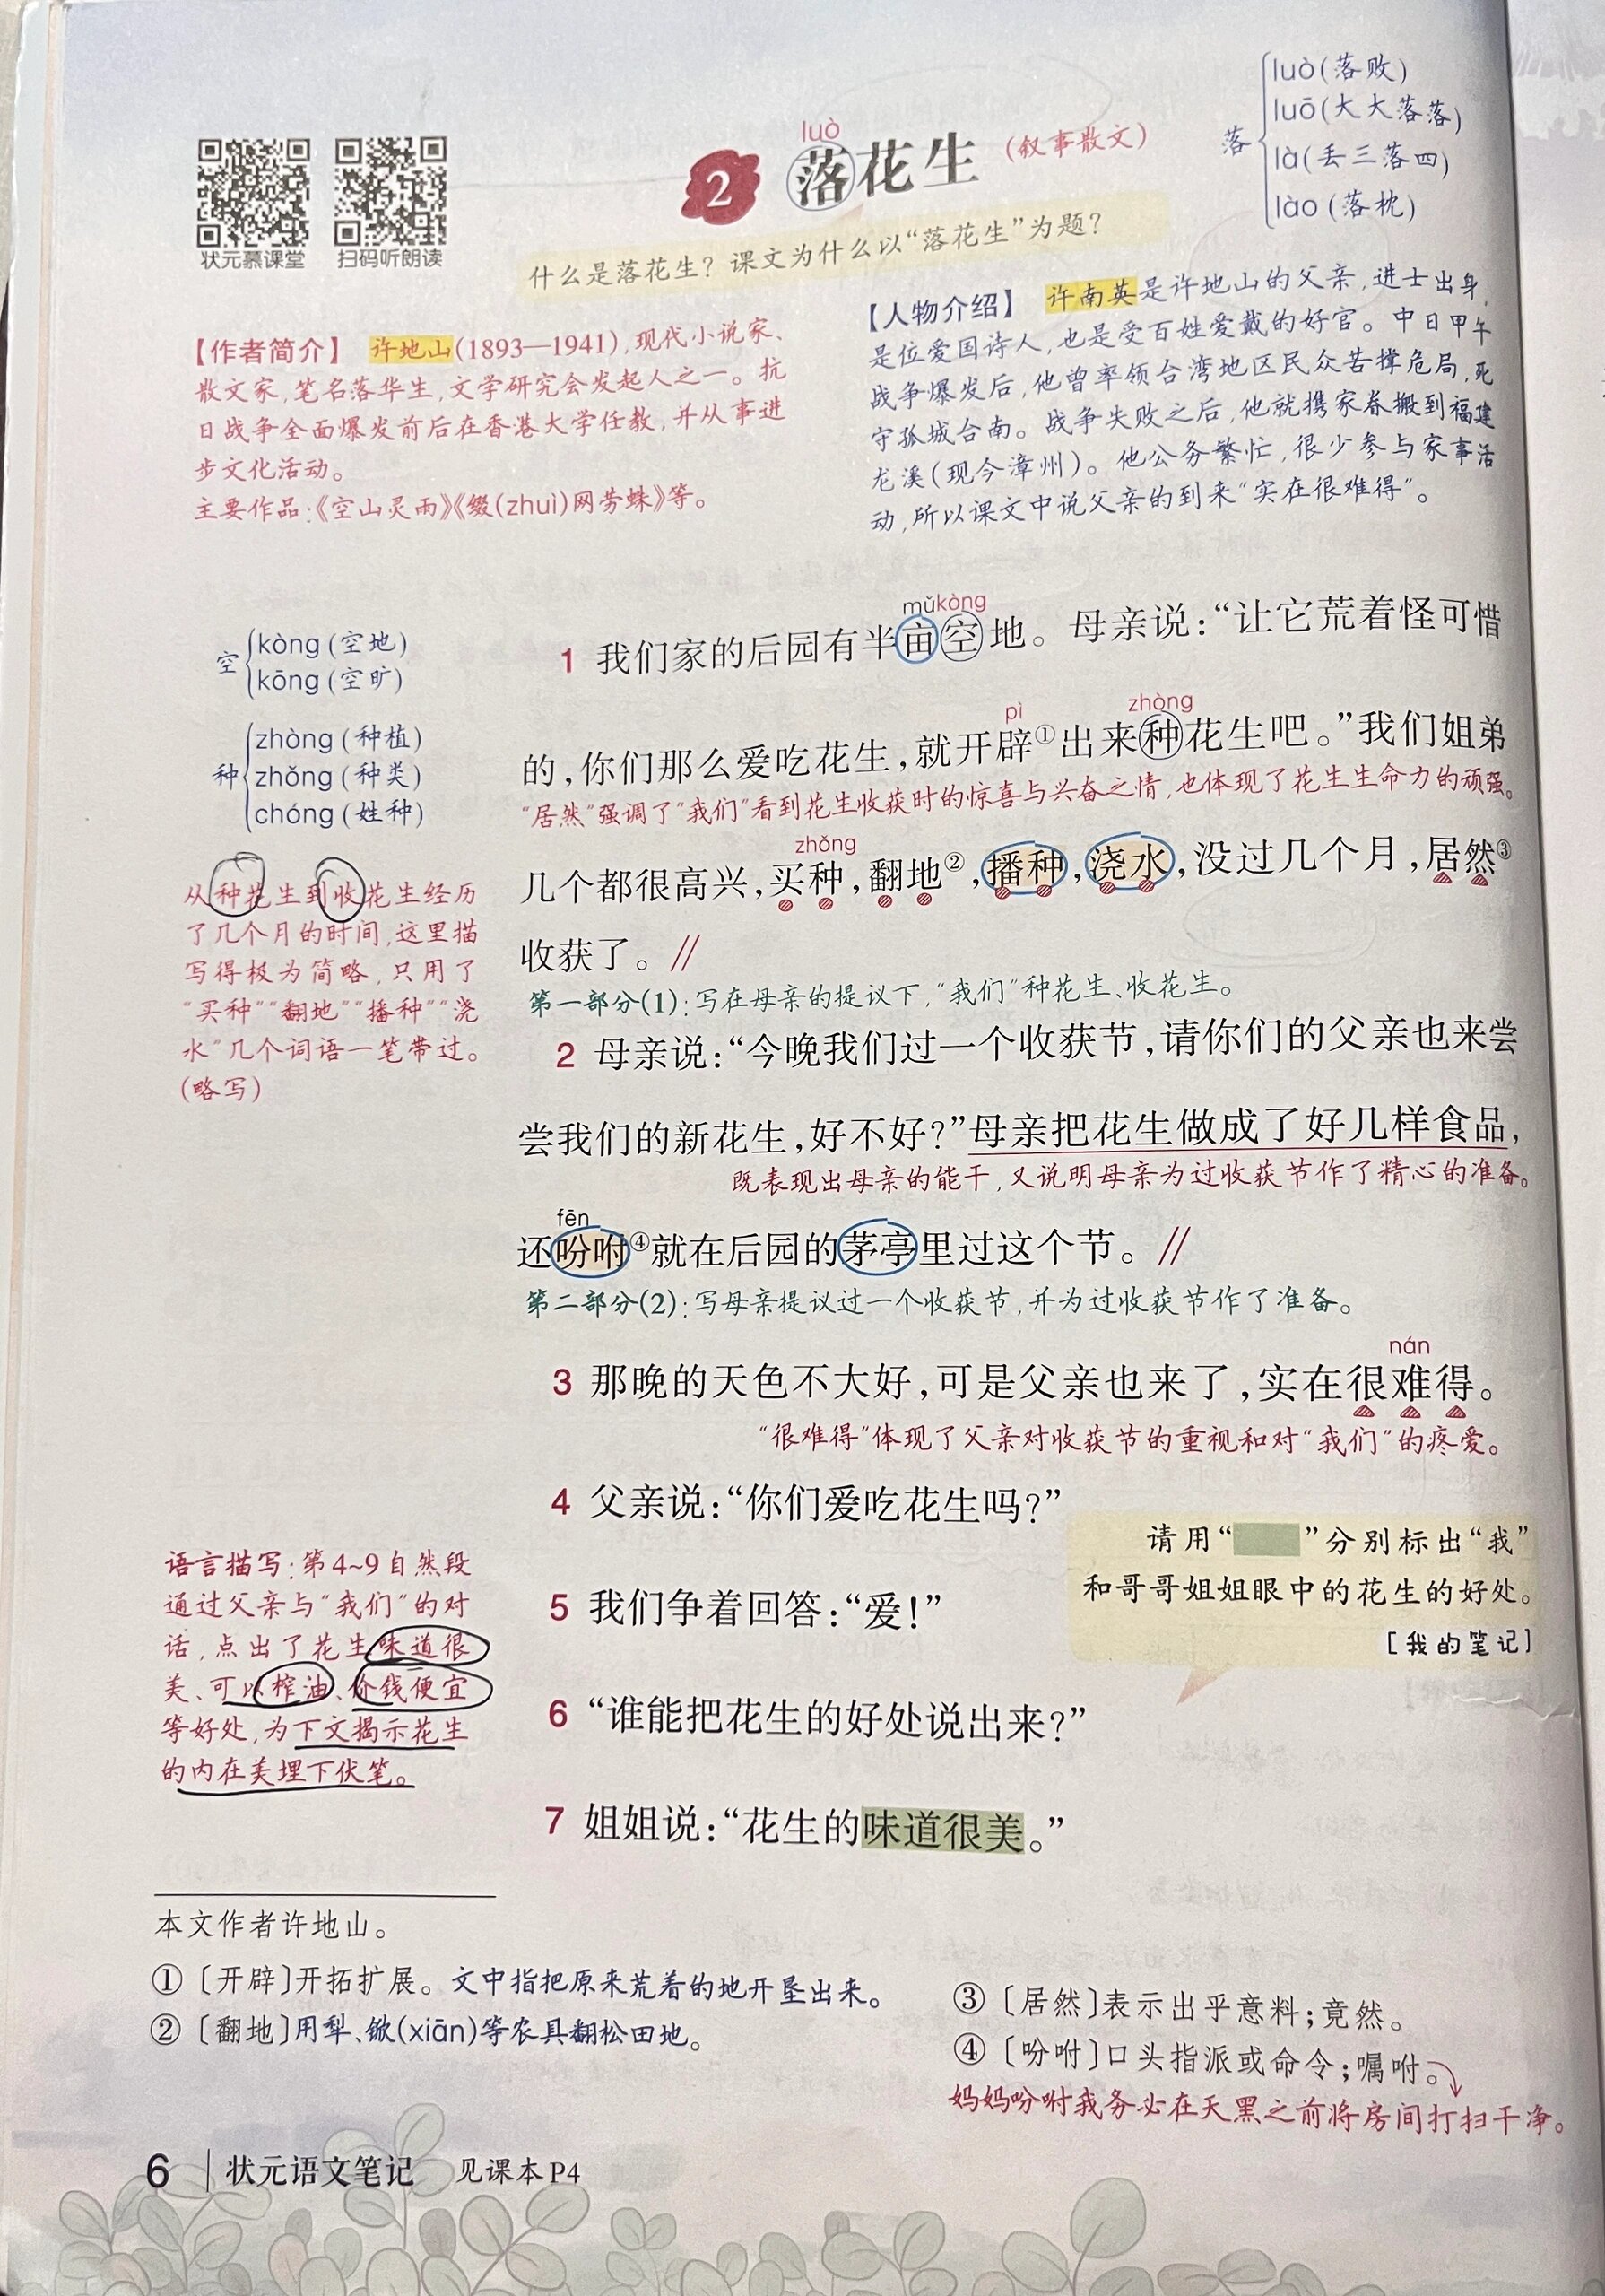 luò(落败)
luō(大大落落)
落
là(丢三落四)
lào(落枕)
luò
2 落花生 (叙事散文)
状元慕课堂 扫码听朗读
什么是落花生？课文为什么以“落花生”为题？
【作者简介】 许地山(1893—1941),现代小说家、
散文家,笔名落华生,文学研究会发起人之一。抗
日战争全面爆发前后在香港大学任教,并从事进
步文化活动。
主要作品:《空山灵雨》《缀(zhuì)网劳蛛》等。
【人物介绍】 许南英是许地山的父亲,进士出身,
是位爱国诗人,也是受百姓爱戴的好官。中日甲午
战争爆发后,他曾率领台湾地区民众苦撑危局,死
守孤城台南。战争失败之后,他就携家眷搬到福建
龙溪(现今漳州)。他公务繁忙,很少参与家事活
动,所以课文中说父亲的到来“实在很难得”。
空
kòng(空地)
kōng(空旷)
种
zhòng(种植)
zhǒng(种类)
chóng(姓种)
mǔ kòng
1 我们家的后园有半亩空地。母亲说:“让它荒着怪可惜
pì zhòng
的,你们那么爱吃花生,就开辟①出来种花生吧。”我们姐弟
“居然”强调了“我们”看到花生收获时的惊喜与兴奋之情,也体现了花生生命力的顽强。
zhǒng
几个都很高兴,买种,翻地②,播种,浇水,没过几个月,居然③
收获了。//
第一部分(1):写在母亲的提议下,“我们”种花生、收花生。
从种花生到收花生经历
了几个月的时间,这里描
写得极为简略,只用了
“买种”“翻地”“播种”“浇
水”几个词语一笔带过。
(略写)
2 母亲说:“今晚我们过一个收获节,请你们的父亲也来尝
尝我们的新花生,好不好?”母亲把花生做成了好几样食品,
既表现出母亲的能干,又说明母亲为过收获节作了精心的准备。
fēn
还吩咐④就在后园的茅亭里过这个节。//
第二部分(2):写母亲提议过一个收获节,并为过收获节作了准备。
nán
3 那晚的天色不大好,可是父亲也来了,实在很难得。
“很难得”体现了父亲对收获节的重视和对“我们”的疼爱。
4 父亲说:“你们爱吃花生吗?”
请用“ ”分别标出“我”
和哥哥姐姐眼中的花生的好处。
[我的笔记]
5 我们争着回答:“爱!”
6 “谁能把花生的好处说出来?”
7 姐姐说:“花生的味道很美。”
语言描写:第4~9自然段
通过父亲与“我们”的对
话,点出了花生味道很
美、可以榨油、价钱便宜
等好处,为下文揭示花生
的内在美埋下伏笔。
本文作者许地山。
①〔开辟〕开拓扩展。文中指把原来荒着的地开垦出来。
②〔翻地〕用犁、锨(xiān)等农具翻松田地。
③〔居然〕表示出乎意料;竟然。
④〔吩咐〕口头指派或命令;嘱咐。
妈妈吩咐我务必在天黑之前将房间打扫干净。
6 | 状元语文笔记 见课本P4